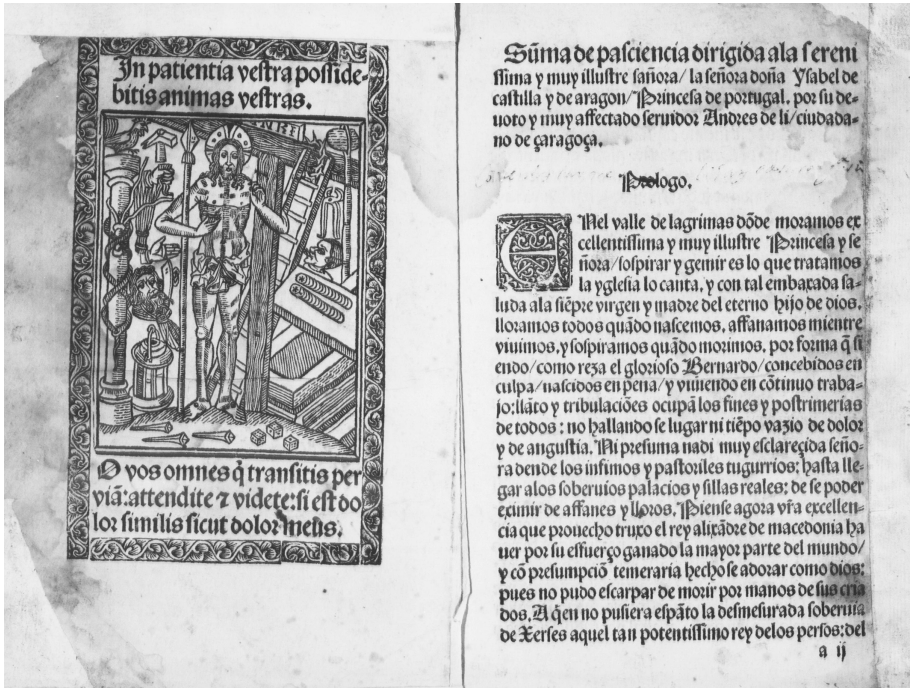 In patientia vestra posside-
bitis animas vestras.
INRI
O vos omnes q̃ transitis per
viã: attendite ⁊ videte: si est do
lor similis sicut dolor meus.
Sũma de pasciencia dirigida ala sereni
ssima y muy illustre sañora/ la señora doña Ysabel de
castilla y de aragon/ Princesa de portugal. por su de-
uoto y muy affectado seruidor Andres de li/ ciudada-
no de çaragoça.
Prologo.
ENel valle de lagrimas dõde moramos ex
cellentissima y muy illustre Princesa y se
ñora/ sospirar y gemir es lo que tratamos
la yglesia lo canta, y con tal embaxada sa-
luda ala siẽpre virgen y madre del eterno hijo de dios.
lloramos todos quãdo nascemos, affanamos mientre
viuimos, y sospiramos quãdo morimos, por forma q̃ si
endo/ como reza el glorioso Bernardo/ concebidos en
culpa/ nascidos en pena/ y viuiendo en cõtinuo traba-
jo: llãto y tribulaciões ocupã los fines y postrimerias
de todos: no hallando se lugar ni tiẽpo vazio de dolor
y de angustia. Ni presuma nadi muy esclareçida seño-
ra dende los infimos y pastoriles tugurrios: hasta lle-
gar alos soberuios palacios y sillas reales: de se poder
eximir de affanes y lloros. Piense agora vr̃a excellen-
cia que prouecho truxo el rey alixãdre de macedonia ha
uer por su esfuerço ganado la mayor parte del mundo/
y cõ presumpciõ temeraria hecho se adorar como dios:
pues no pudo escarpar de morir por manos de sus cria
dos. A q̃en no pusiera espãto la desmesurada soberuia
de Xerses aquel tan potentissimo rey delos persos: del
a ij